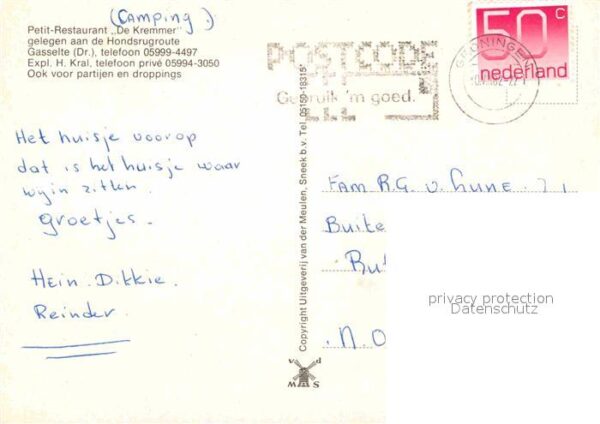 (Camping)
Petit-Restaurant „De Kremmer"
gelegen aan de Hondsrugroute
Gasselte (Dr.), telefoon 05999-4497
Expl. H. Kral, telefoon privé 05994-3050
Ook voor partijen en droppings
POSTCODE
Gebruik 'm goed.
GRONINGEN
50 c
nederland
Het huisje voorop
dat is het huisje waar
wijn zitten.
groetjes.
Hein. Dikkie.
Reinder
Copyright Uitgeverij van der Meulen, Sneek b.v. Tel. 05150-18315*
Fam R.G. v.
Buite
Bu
N.O
v d
W M S
privacy protection
Datenschutz